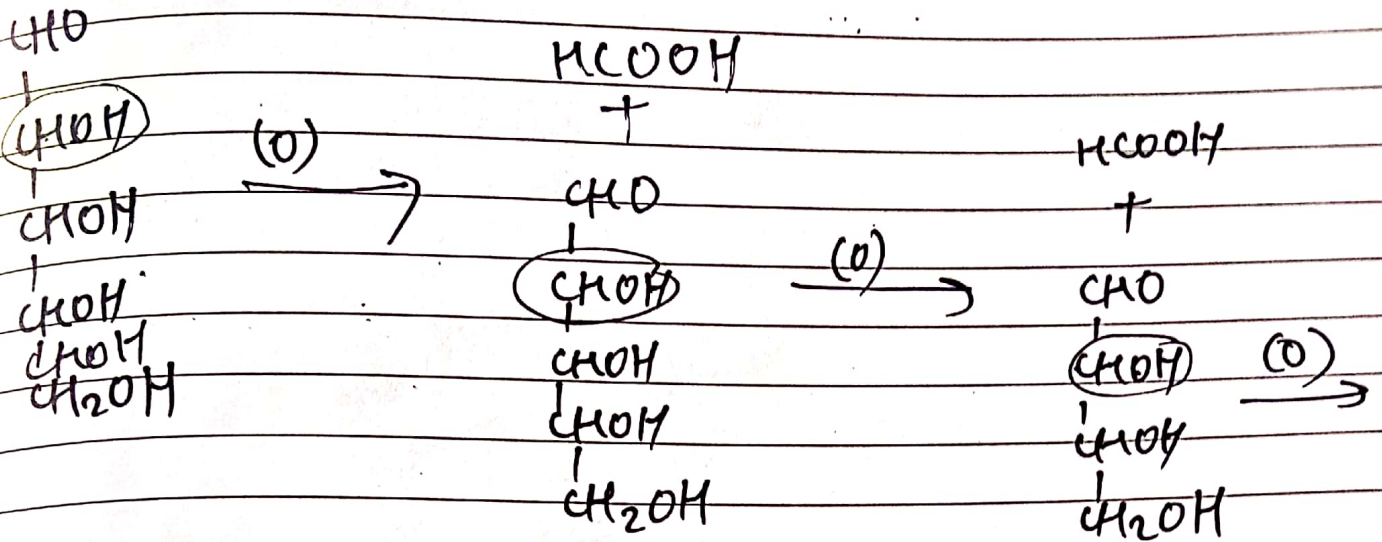 CHO
|
CHOH
|
CHOH
|
CHOH
CHOH
CH2OH
(O)
→
HCOOH
+
CHO
|
CHOH
|
CHOH
|
CHOH
|
CH2OH
(O)
→
HCOOH
+
CHO
|
CHOH
|
CHOH
|
CH2OH
(O)
→